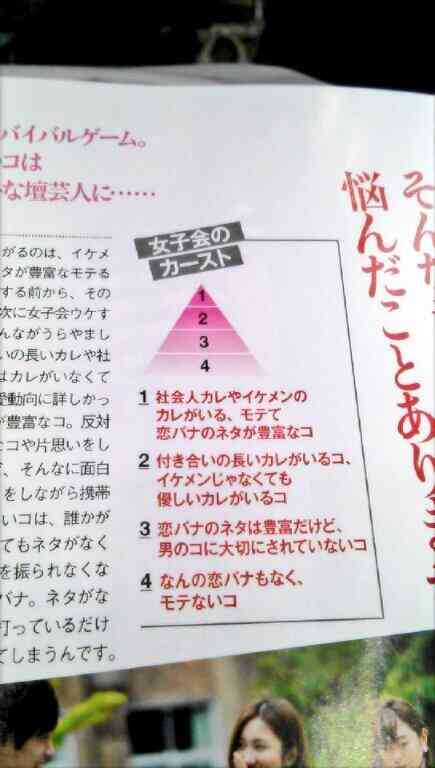 そんな
悩んだことあり
バイバルゲーム。
コは
な壇芸人に……
がるのは、イケメ
タが豊富なモテる
する前から、その
次に女子会ウケす
んながうらやまし
いの長いカレや社
はカレがいなくて
愛動向に詳しかっ
が豊富なコ。反対
なコや片思いをし
、そんなに面白
をしながら携帯
いコは、誰かが
てもネタがなく
を振られなくな
バナ。ネタがな
打っているだけ
てしまうんです。
女子会の
カースト
1
2
3
4
1 社会人カレやイケメンの
カレがいる、モテて
恋バナのネタが豊富なコ
2 付き合いの長いカレがいるコ、
イケメンじゃなくても
優しいカレがいるコ
3 恋バナのネタは豊富だけど、
男のコに大切にされていないコ
4 なんの恋バナもなく、
モテないコ